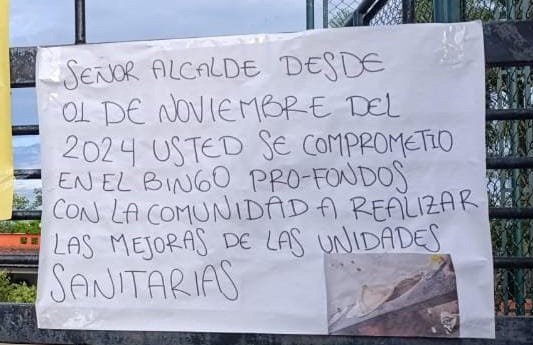 SEÑOR ALCALDE DESDE
01 DE NOVIEMBRE DEL
2024 USTED SE COMPROMETIO
EN EL BINGO PRO-FONDOS
CON LA COMUNIDAD A REALIZAR
LAS MEJORAS DE LAS UNIDADES
SANITARIAS